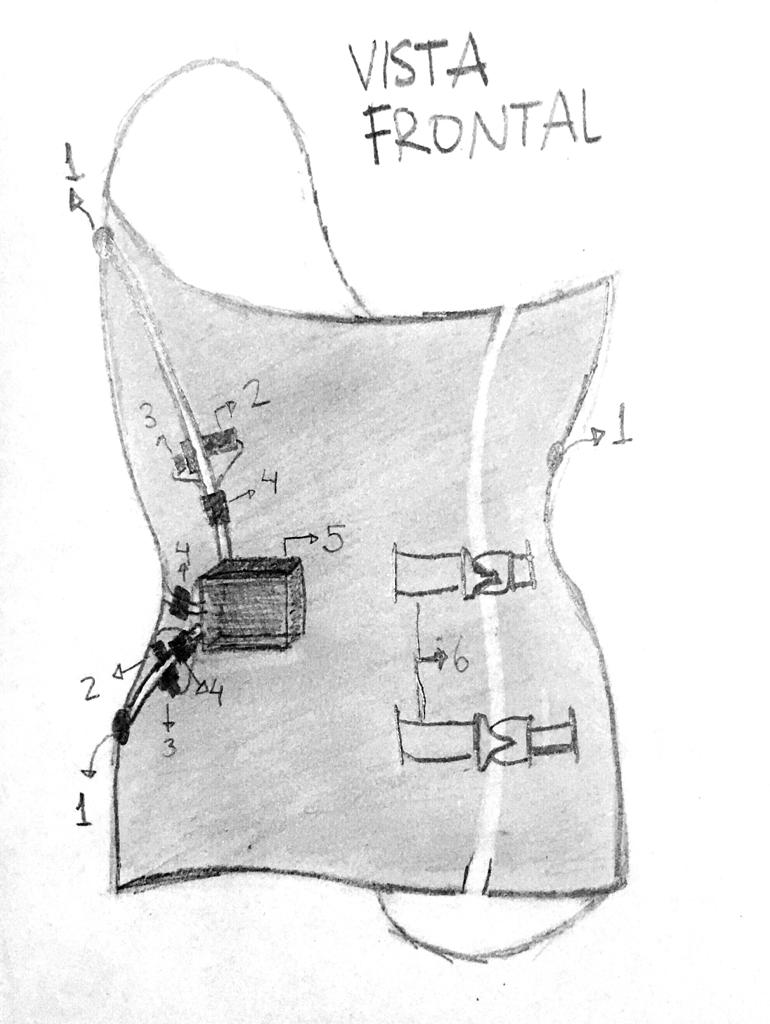 VISTA
FRONTAL
1
1
2
3
4
5
4
6
2
4
3
1